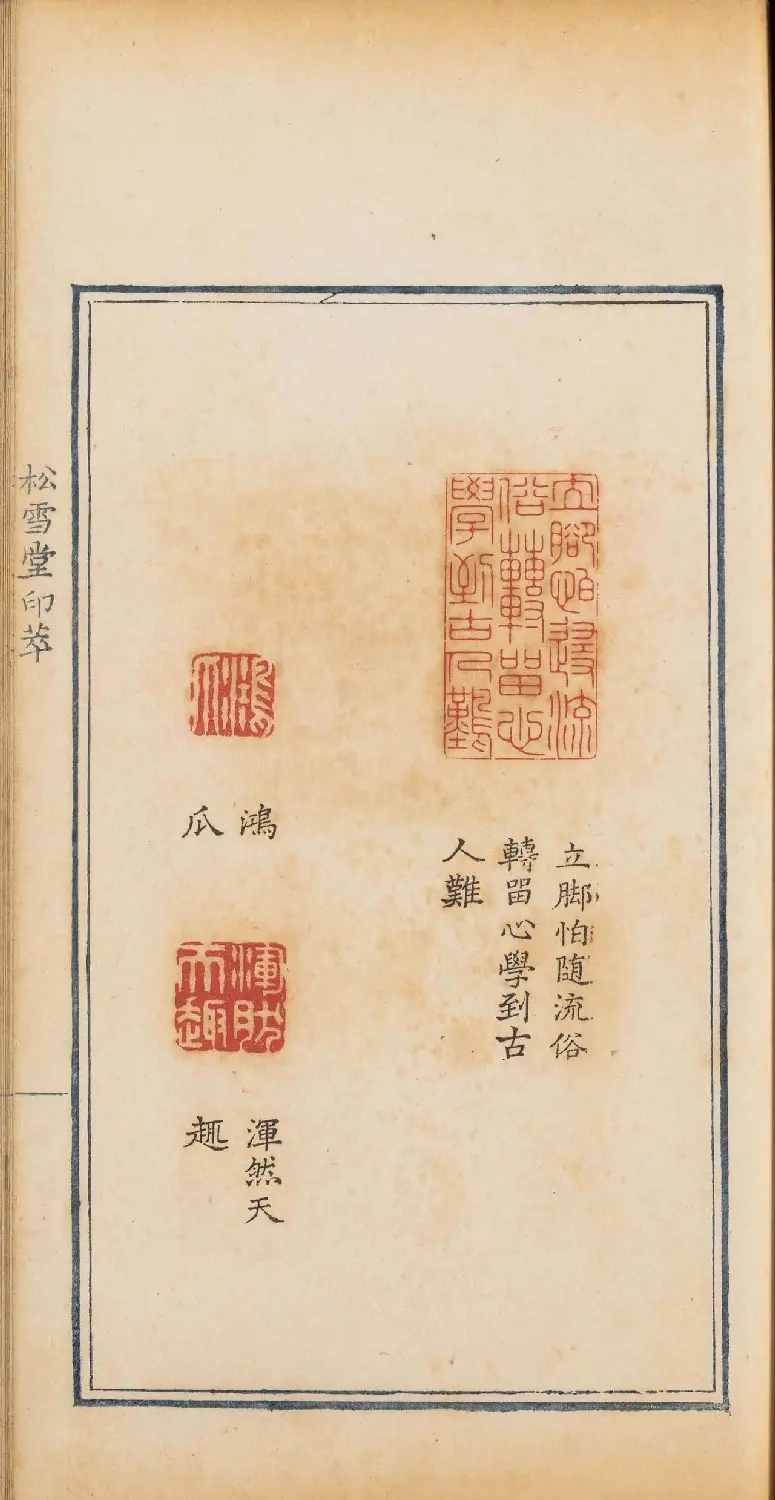 立脚怕随流俗
轉畱心學到古
人難
鴻
爪
渾然天
趣
松雪堂印萃